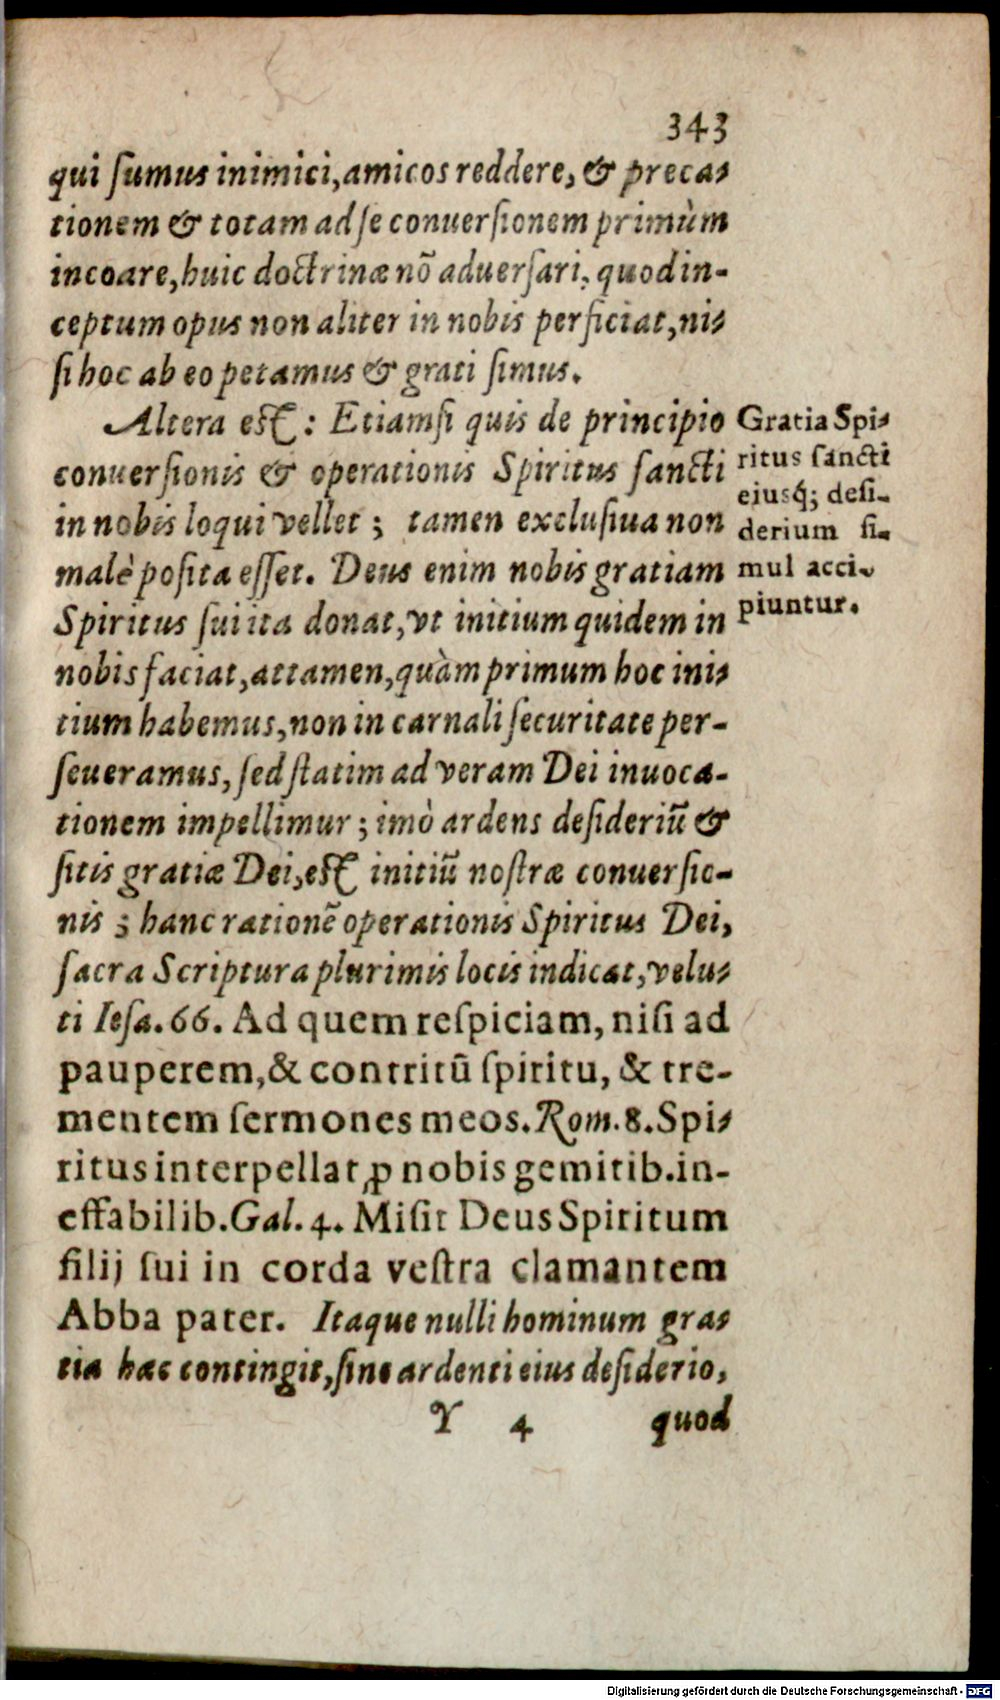 343
qui ſumus inimici, amicos reddere, & preca-
tionem & totam ad ſe conuerſionem primùm
incoare, huic doctrinæ nō aduerſari, quod in-
ceptum opus non aliter in nobis perficiat, ni-
ſi hoc ab eo petamus & grati ſimus.
Altera eſt: Etiamſi quis de principio
conuerſionis & operationis Spiritus ſancti
in nobis loqui vellet; tamen excluſiua non
malè poſita eſſet. Deus enim nobis gratiam
Spiritus ſui ita donat, vt initium quidem in
nobis faciat, attamen, quàm primum hoc ini-
tium habemus, non in carnali ſecuritate per-
ſeueramus, ſed ſtatim ad veram Dei inuoca-
tionem impellimur; imò ardens deſideriū &
ſitis gratiæ Dei, eſt initiū noſtræ conuerſio-
nis; hanc rationē operationis Spiritus Dei,
ſacra Scriptura plurimis locis indicat, velu-
ti Ieſa. 66. Ad quem reſpiciam, niſi ad
pauperem, & contritū ſpiritu, & tre-
mentem ſermones meos. Rom. 8. Spi-
ritus interpellat ꝓ nobis gemitib. in-
effabilib. Gal. 4. Miſit Deus Spiritum
filij ſui in corda veſtra clamantem
Abba pater. Itaque nulli hominum gra-
tia hæc contingit, ſine ardenti eius deſiderio,
Y 4 quod
Gratia Spi-
ritus ſancti
eiusq́; deſi-
derium ſi-
mul acci-
piuntur.
Digitalisierung gefördert durch die Deutsche Forschungsgemeinschaft - DFG